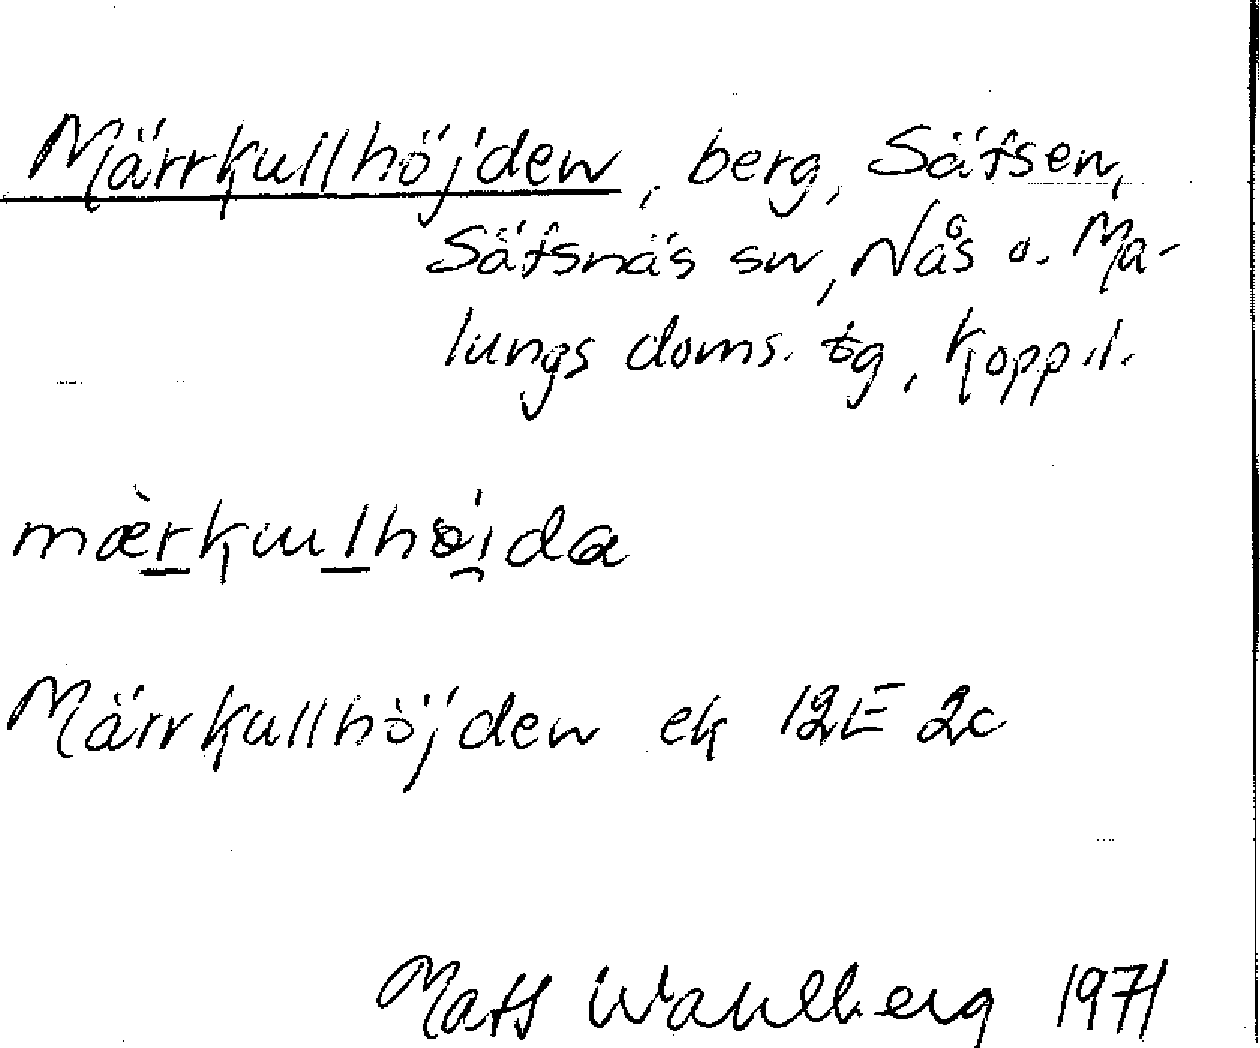 Märrkullhöjden, berg, Säfsen,
Säfsnäs sn, Nås o. Ma-
lungs doms. tg, Kopp. l.
mæ̀rkɯlhøi̯da
Märrkullhöjden ek 12E 2c
Mats Wahlberg 1971